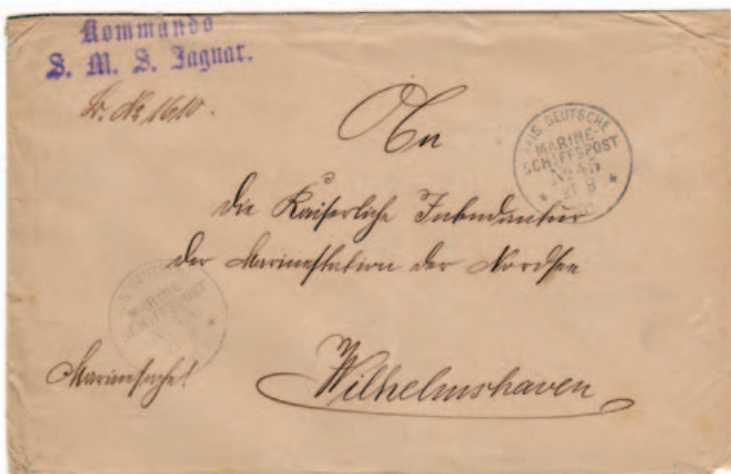 Kommando
S. M. S. Jaguar.
Br. № 1610.
An
KAIS. DEUTSCHE
MARINE-
SCHIFFSPOST
No 45
21 8
die Kaiserliche Intendantur
der Marinestation der Nordsee
MARINE
SCHIFFSPOST
Marinesache!
Wilhelmshaven